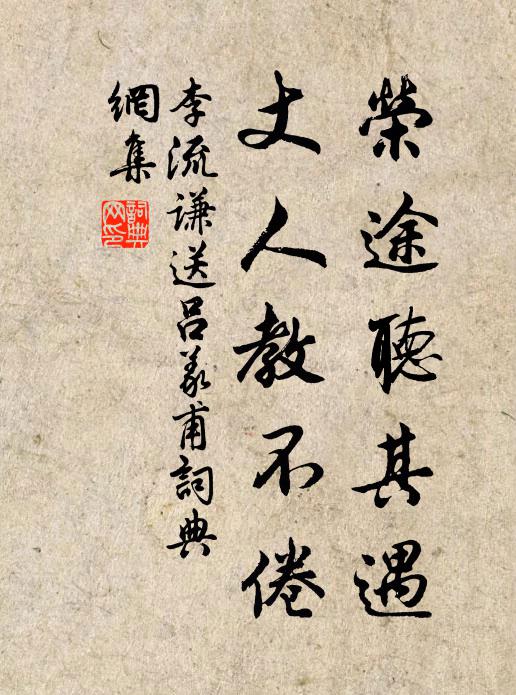 榮途聽其遇
丈人教不倦
李流謙送呂義甫詞典
網集
詞典
网印